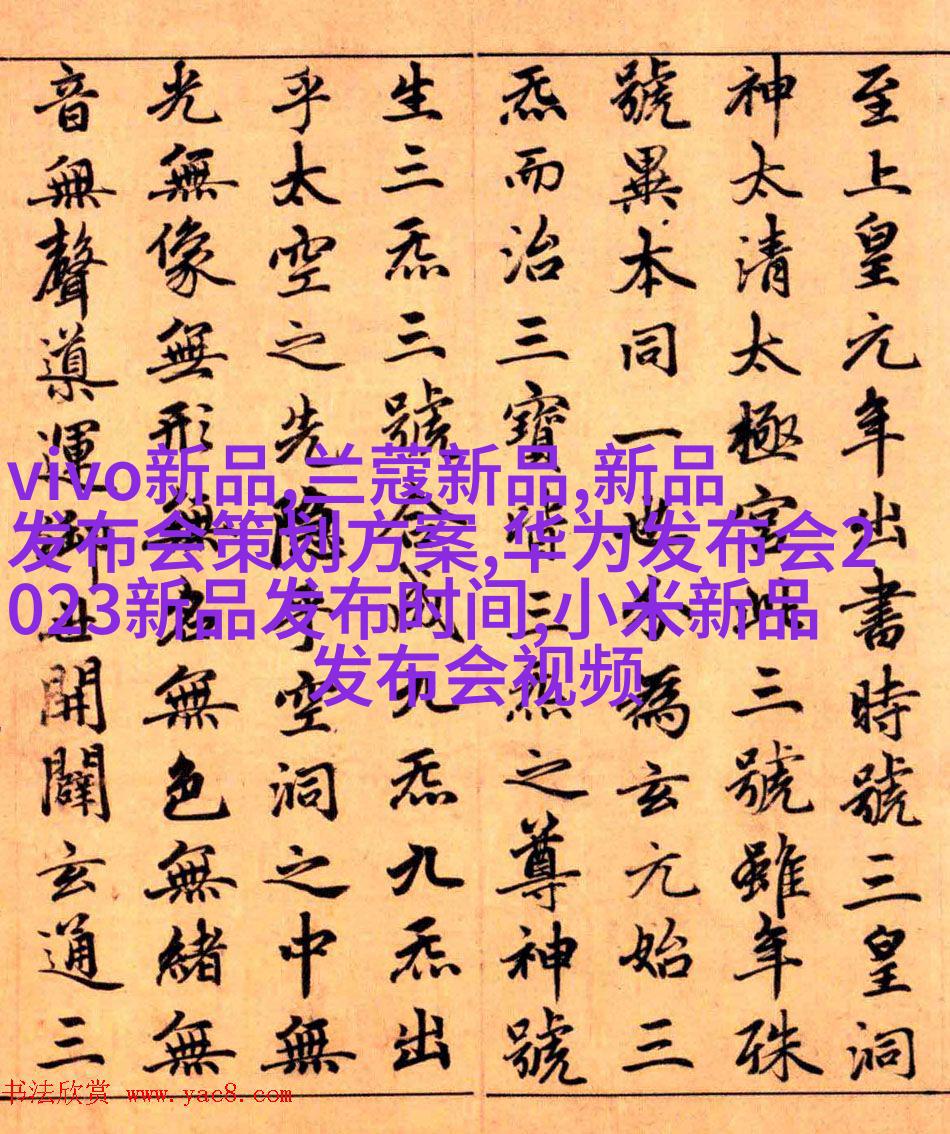 至上皇元年出書時號三皇洞
神太清太極宮此三號雖年殊
號異本同一也分為玄元始三
炁而治三寶皆三炁之尊神號
生三炁三號合成九炁九炁出
乎太空之先隱乎空洞之中無
光無像無形無名無色無緒無
音無聲導運御世開闢玄通三
vivo新品,兰蔻新品,新品
发布会策划方案,华为发布会2
023新品发布时间,小米新品
发布会视频
书法欣赏 www.yac8.com